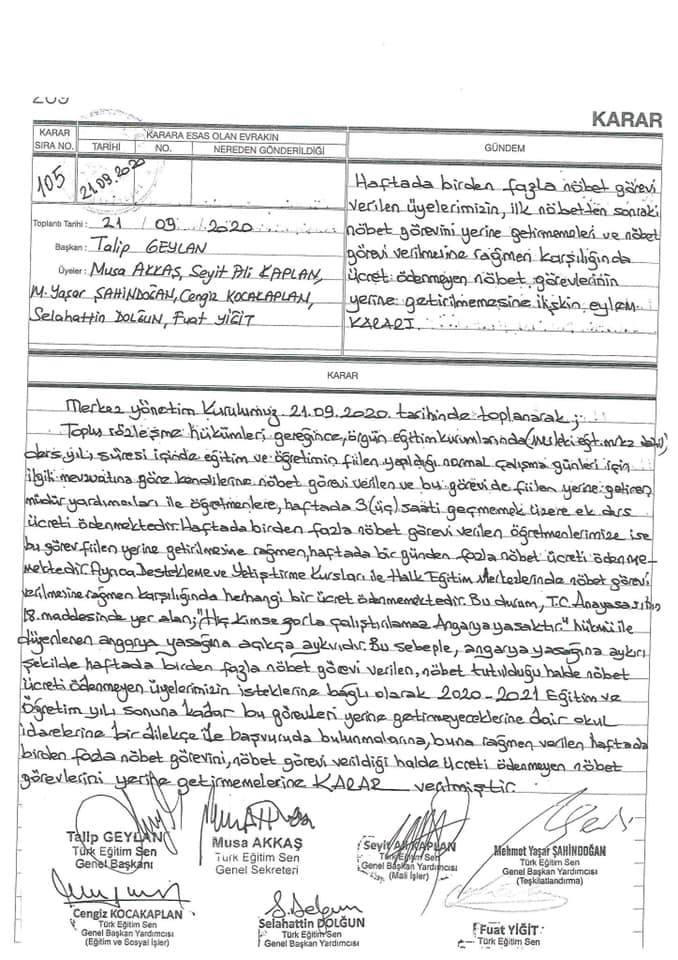 KARAR
KARAR SIRA NO.
KARARA ESAS OLAN EVRAKIN
TARİHİ NO. NEREDEN GÖNDERİLDİĞİ
GÜNDEM
105
21.09.2020
Toplantı Tarihi : 21 / 09 / 2020
Başkan : Talip GEYLAN
Üyeler : Musa AKKAŞ, Seyit Ali KAPLAN,
M. Yaşar ŞAHİNDOĞAN, Cengiz KOCAKAPLAN,
Selahattin DOLĞUN, Fuat YİĞİT
Haftada birden fazla nöbet görevi
verilen üyelerimizin, ilk nöbetden sonraki
nöbet görevini yerine getirmemeleri ve nöbet
görevi verilmesine rağmen karşılığında
ücret ödenmeyen nöbet görevlerinin
yerine getirilmemesine ilişkin eylem
KARARI
KARAR
Merkez yönetim Kurulumuz 21.09.2020 tarihinde toplanarak;
Toplu sözleşme hükümleri gereğince, örgün eğitim kurumlarında (mesleki eğt. mrkz dahil)
ders yılı süresi içinde eğitim ve öğretimin fiilen yapıldığı normal çalışma günleri için
ilgili mevzuatına göre kendilerine nöbet görevi verilen ve bu görevi de fiilen yerine getiren
müdür yardımcıları ile öğretmenlere, haftada 3 (üç) saati geçmemek üzere ek ders
ücreti ödenmektedir. Haftada birden fazla nöbet görevi verilen öğretmenlerimize ise
bu görev fiilen yerine getirilmesine rağmen, haftada bir günden fazla nöbet ücreti ödenme-
mektedir. Ayrıca Destekleme ve Yetiştirme Kursları ile Halk Eğitim Merkezlerinde nöbet görevi
verilmesine rağmen karşılığında herhangi bir ücret ödenmemektedir. Bu durum, T.C. Anayasasının
18. maddesinde yer alan; "Hiç kimse zorla çalıştırılamaz. Angarya yasaktır." hükmü ile
düzenlenen angarya yasağına açıkça aykırıdır. Bu sebeple, angarya yasağına aykırı
şekilde haftada birden fazla nöbet görevi verilen, nöbet tutulduğu halde nöbet
ücreti ödenmeyen üyelerimizin isteklerine bağlı olarak 2020-2021 Eğitim ve
Öğretim yılı sonuna kadar bu görevleri yerine getirmeyeceklerine dair okul
idarelerine bir dilekçe ile başvuruda bulunmalarına, buna rağmen verilen haftada
birden fazla nöbet görevini, nöbet görevi verildiği halde ücreti ödenmeyen nöbet
görevlerini yerine getirmemelerine KARAR verilmiştir.
Talip GEYLAN
Türk Eğitim Sen
Genel Başkanı
Musa AKKAŞ
Türk Eğitim Sen
Genel Sekreteri
Seyit Ali KAPLAN
Türk Eğitim Sen
Genel Başkan Yardımcısı
(Mali İşler)
Mehmet Yaşar ŞAHİNDOĞAN
Türk Eğitim Sen
Genel Başkan Yardımcısı
(Teşkilatlandırma)
Cengiz KOCAKAPLAN
Türk Eğitim Sen
Genel Başkan Yardımcısı
(Eğitim ve Sosyal İşler)
S. Dolgun
Selahattin DOLĞUN
Türk Eğitim Sen
Genel Başkan Yardımcısı
Fuat YİĞİT
Türk Eğitim Sen